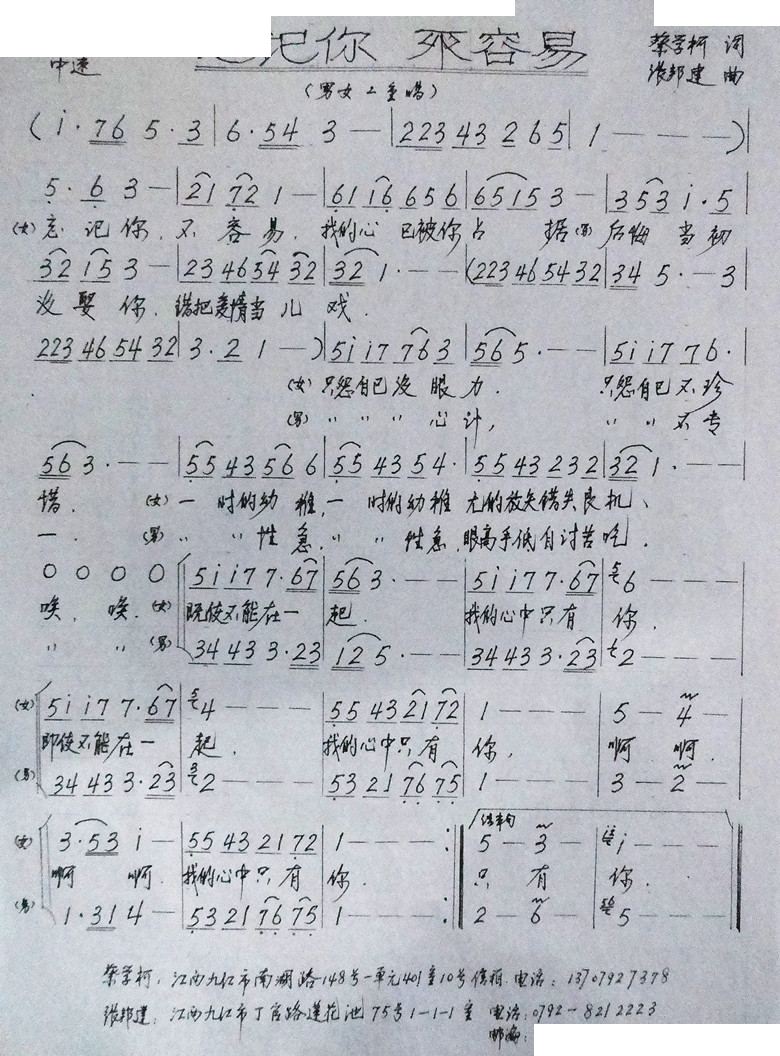 记你 不容易
蔡学柯 词
中速
张邦建 曲
(男女二重唱)
( i · 76 5 · 3 | 6 · 54 3 — | 223 43 2 65 | 1 — — — ) |
5 · 6 3 — | 21 72 1 — | 61 16 65 6 | 65 15 3 — | 353 i · 5
(女) 忘记你, 不容易, 我的心已被你占据 (男) 后悔当初
32 15 3 — | 23 46 54 32 | 32 1 · — — | (223 46 54 32 | 34 5 · — 3
没娶你, 错把爱情当儿戏.
223 46 54 32 | 3 · 2 1 — ) | 5i i7 76 3 | 56 5 · — — | 5i i7 76 ·
(女) 只怨自己没眼力. 只怨自己不珍
(男) 〃 〃 〃 心计, 〃 〃 不专
56 3 · — — | 55 43 56 6 | 55 43 54 · | 55 43 232 | 32 1 · — —
惜. (女) 一时的幼稚, 一时的幼稚 错失良机、
一. (男) 〃 〃 性急, 〃 〃 性急, 眼高手低自讨苦吃.
0 0 0 0 | 5i i7 7 · 67 | 56 3 · — — | 5i i7 7 · 67 | 6 — — —
唉, 唉. (女) 既使不能在一起. 我的心中只有你,
〃 〃 (男) 34 43 3 · 23 | 12 5 · — — | 34 43 3 · 23 | 2 — — —
(女) 5i i7 7 · 67 | 4 — — — | 55 43 21 72 | 1 — — — | 5 — 4 —
即使不能在一起. 我的心中只有你, 啊 啊.
(男) 34 43 3 · 23 | 2 — — — | 53 21 76 75 | 1 — — — | 3 — 2 —
结束句
(女) 3 · 53 i — | 55 43 21 72 | 1 — — — :‖ 5 — 3 — | i — — — ‖
啊 啊. 我的心中只有你. 只有你.
(男) 1 · 31 4 — | 53 21 76 75 | 1 — — — :‖ 2 — 6 — | 5 — — — ‖
蔡学柯, 江西九江市南湖路148号一单元401室10号信箱. 电话: 13707927378
张邦建, 江西九江市丁官路莲花池75号1-1-1室 电话: 0792-8212223
邮编: